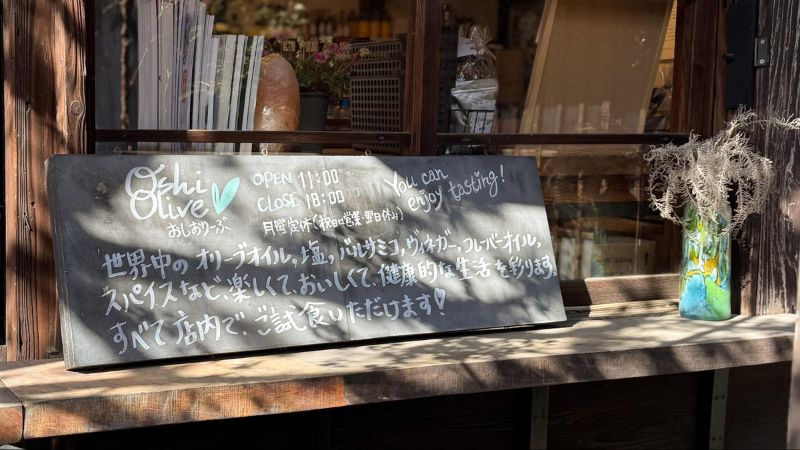 Oshi
Olive
おしおりーぶ
OPEN 11:00
CLOSE 18:00
月曜定休(祝日営業・翌日休み)
You can
enjoy tasting!
世界中の オリーブオイル、塩、バルサミコ、ヴィネガー、フレーバーオイル、
スパイスなど、楽しくて、おいしくて、健康的な生活を彩ります。
すべて店内で、ご試食いただけます!